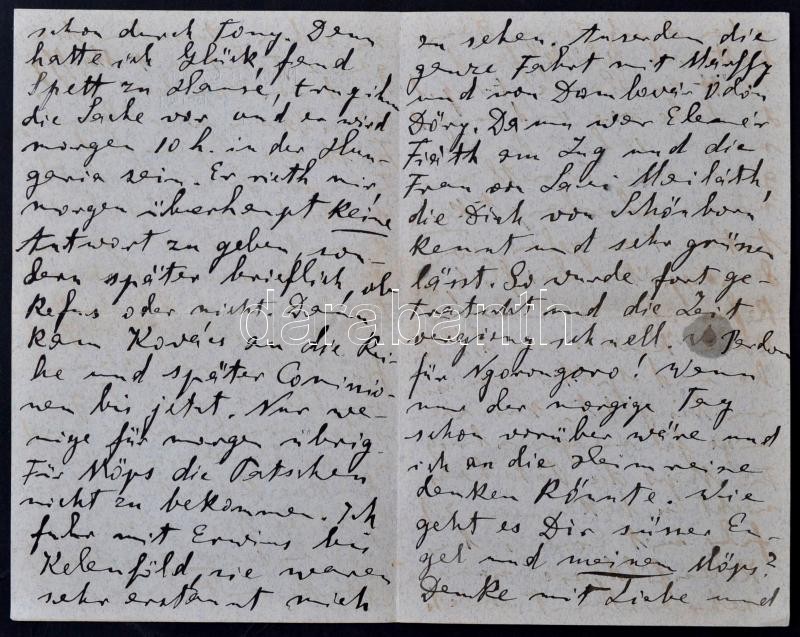 schon durch Tony. Dann
hatte ich Glück, fand
Spett zu Hause, trug ihm
die Sache vor und er wird
morgen 10 h. in der Hun-
garia sein. Er rieth mir,
morgen überhaupt keine
Antwort zu geben, son-
dern später brieflich, ob
Refus oder nicht. Dann
kam Kovács an die Rei-
he und später Comissio-
nen bis jetzt. Nur we-
nige für morgen übrig.
Für Möps die Tatschen
nicht zu bekommen. Ich
fuhr mit Erwins bis
Kelenföld, sie waren
sehr erstaunt mich
zu sehen. Ausserdem die
ganze Fahrt mit Márffy
und von Dombovár Ödön
Döry. Dann war Elemér
am Zug und die
Frau von Mailáth,
die Dich von Schönborn
kennt und sehr grüssen
lässt. So wurde fort ge-
tratscht und die Zeit
verging schnell. Pardon
für Ngorongoro! Wenn
nur der morgige Tag
schon vorüber wäre und
ich an die Heimreise
denken könnte. Wie
geht es Dir süsser En-
gel und meinem Möps?
Denke mit Liebe und
darabanth